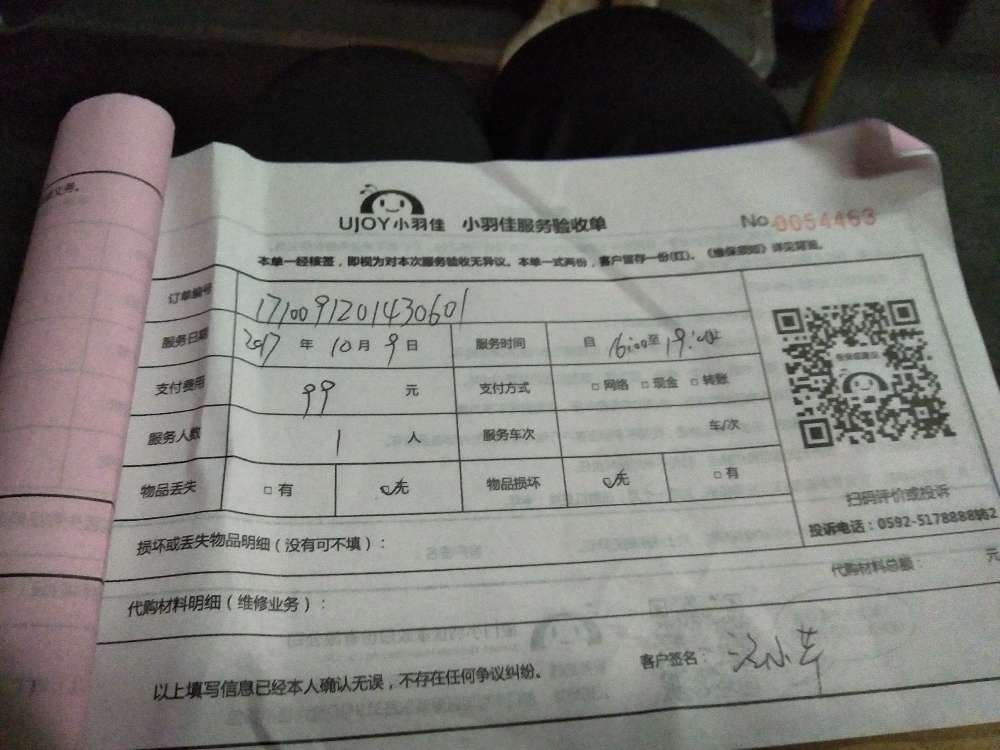 UJOY小羽佳 小羽佳服务验收单 No.0054463
本单一经核签，即视为对本次服务验收无异议。本单一式两份，客户留存一份(红)。《维保须知》详见背面。
订单编号 1710091201430601
服务日期 2017 年 10 月 9 日 服务时间 自 16:00 至 19:00 止
支付费用 99 元 支付方式 □ 网络 □ 现金 □ 转账
服务人数 1 人 服务车次 车/次
物品丢失 □ 有 无 物品损坏 无 □ 有
扫码评价或投诉
投诉电话：0592-5178888转2
损坏或丢失物品明细（没有可不填）：
代购材料总额： 元
代购材料明细（维修业务）：
客户签名：
以上填写信息已经本人确认无误，不存在任何争议纠纷。